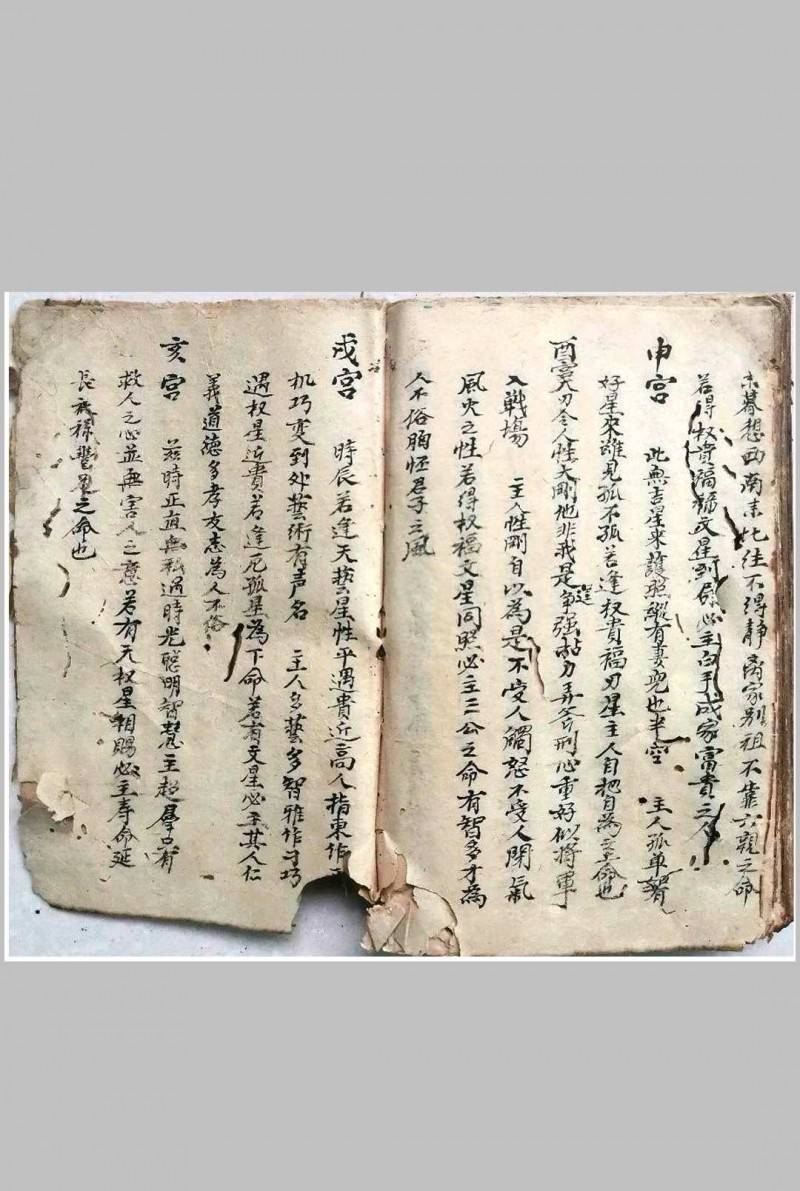 未暮想西南来北往不得静离家别祖不靠六親之命
若得权貴福文星到 必主白手成家富貴之人
申宮 此無吉星來護照縱有妻兒也半空 主人孤單若有
好星來雖見孤不孤若逢权貴福刃星主人自把自為之命也
酉宮天刃令人性大剛他非我是逞争强 刀弄斧刑心重好似将軍
入戰場 主人性剛自以為是不受人觸怒不受人閑氣
風火之性若得权福文星同照必主三公之命有智多才為
人不俗胸怀君子之風
戌宮 時辰若逢天藝星性平遇貴近高人指東作
机巧变到处藝術有声名 主人多藝多智雅作才巧
遇权星近貴若逢厄孤星為下命若有文星必主其人仁
義道德多孝友志為人不俗
亥宮 若時正直無私過時光聰明智慧主超羣只有
救人之心並無害人之意若有 权星相賜必主寿命延
長 之命也